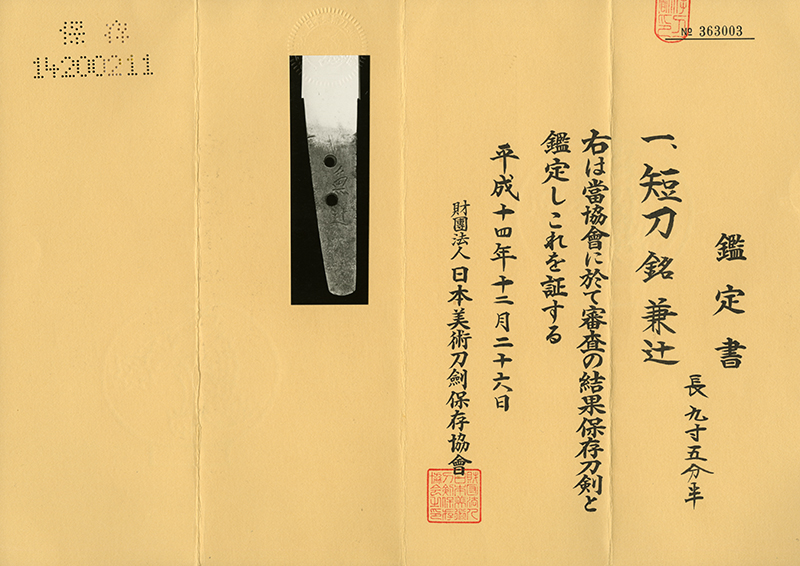 № 363003
鑑定書
一、短刀 銘 兼辻
長 九寸五分半
右は當協會に於て審査の結果保存刀剣と
鑑定しこれを証する
平成十四年十二月二十六日
財團法人 日本美術刀劍保存協會
保存
14200211